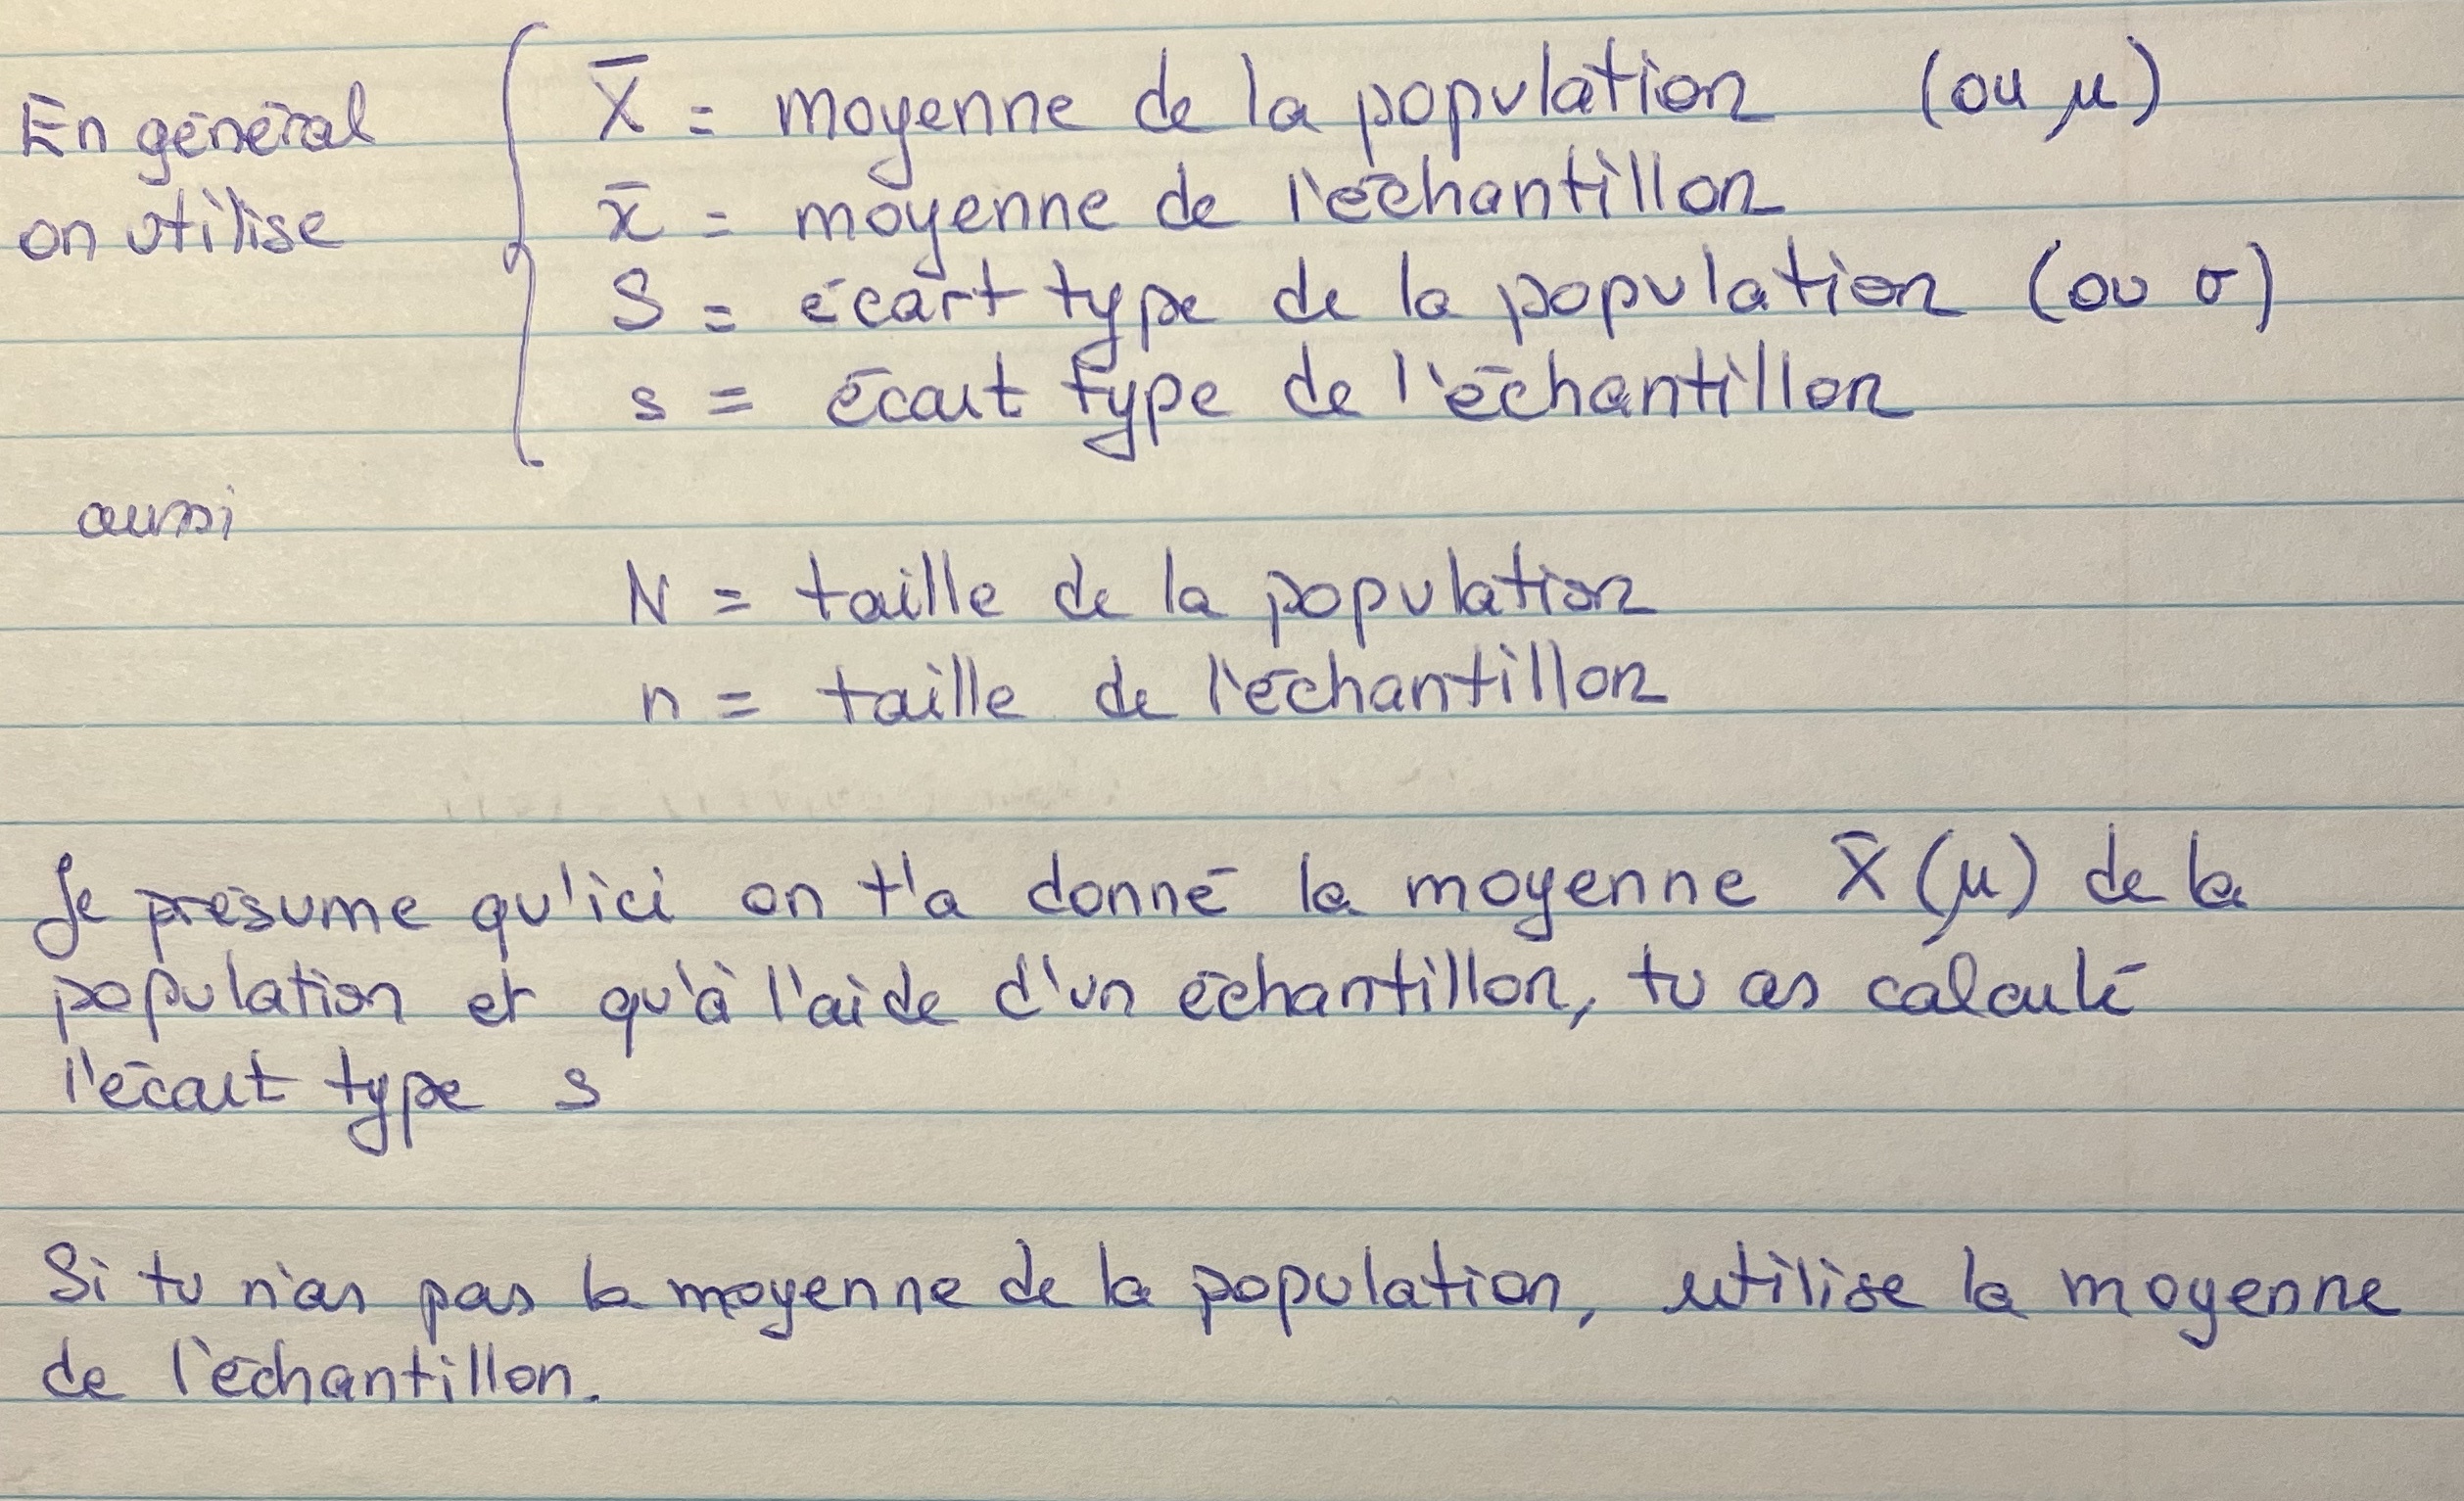 En général on utilise
X̄ = moyenne de la population (ou μ)
x̄ = moyenne de l'échantillon
S = écart type de la population (ou σ)
s = écart type de l'échantillon
aussi
N = taille de la population
n = taille de l'échantillon
Je présume qu'ici on t'a donné la moyenne X̄ (μ) de la
population et qu'à l'aide d'un échantillon, tu as calculé
l'écart type s
Si tu n'as pas la moyenne de la population, utilise la moyenne
de l'échantillon.